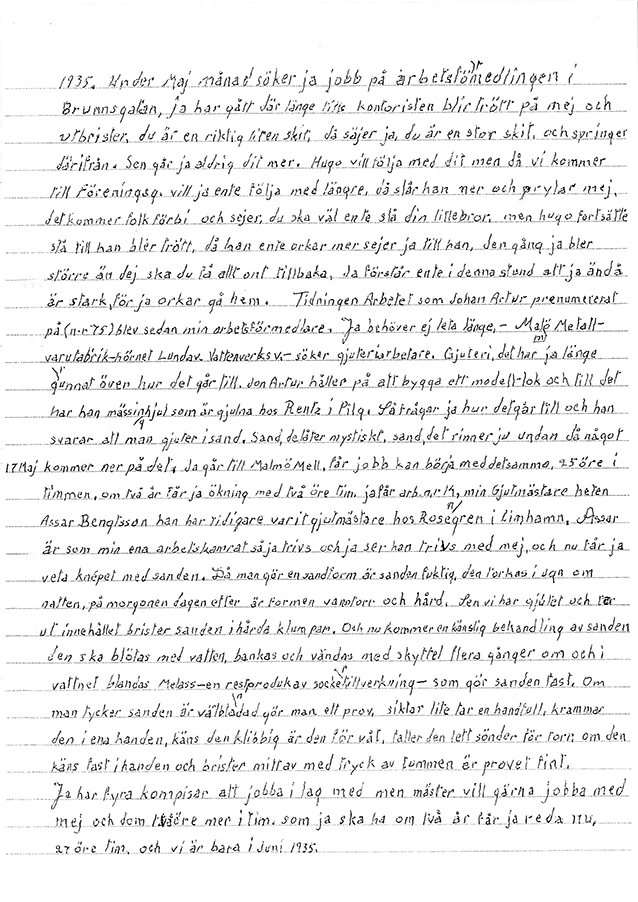 1935. Under Maj månad söker ja jobb på arbetsförmedlingen i
Brunnsgatan, ja har gått där länge tills kontoristen blir trött på mej och
utbrister, du är en riktig liten skit, då säjer ja, du är en stor skit, och springer
därifrån. Sen går ja aldrig dit mer. Hugo vill följa med dit men då vi kommer
till Föreningsg. vill ja ente följa med längre, då slår han ner och prylar mej,
det kommer folk förbi och sejer, du ska väl ente slå din lillebror, men hugo fortsätte
slå till han blir trött, då han ente orkar mer sejer ja till han, den gång ja bler
större än dej ska du få allt ont tillbaka, Ja förstår ente i denna stund att ja ändå
är stark, för ja orkar gå hem. Tidningen Arbetet som Johan Artur prenumererat
på (n.r 75) blev sedan min arbetsförmedlare. Ja behöver ej leta länge, - Malmö Metall-
varufabrik-hörnet Lundav. Vattenverksv.- söker gjuteriarbetare. Gjuteri, det har ja länge
grunnat över hur det går till. Jon Artur håller på att bygga ett modell-lok och till det
har han mässinghjul som är gjutna hos Rentz i Pilg. Så frågar ja hur det går till och han
svarar att man gjuter i sand. Sand, de låter mystiskt, sand, det rinner ju undan då något
17 Maj kommer ner på det. Ja går till Malmö Mell, får jobb kan börja med detsamma, 25 öre i
timmen, om två år får ja ökning med två öre tim. ja får arb.n.r 14, min Gjutmästare heten
Assar Bengtsson han har tidigare varit gjutmästare hos Rosengren i Limhamn. Assar
är som min ena arbetskamrat så ja trivs och ja ser han trivs med mej, och nu får ja
veta knepet med sanden. Då man gör en sandform är sanden fuktig, den torkas i ugn om
natten, på morgonen dagen efter är formen vanntorr och hård. Sen vi har gjutet och tar
ut innehållet brister sanden i hårda klumpar. Och nu kommer en känslig behandling av sanden
den ska blötas med vatten, bankas och vändas med skyttel flera gånger om och i
vattnet blandas Melass-en restproduk av sockertillverkning- som gör sanden fast. Om
man tycker sanden är välblandad gör man ett prov, siktar lite tar en handfull, krammar
den i ena handen, käns den klibbig är den för våt, faller den lett sönder för torr, om den
käns fast i handen och brister mittav med tryck av tummen är provet fint.
Ja har fyra kompisar att jobba i lag med men mäster vill gärna jobba med
mej och dom två öre mer i tim. som ja ska ha om två år får ja reda nu,
27 öre tim, och vi är bara i Juni 1935.